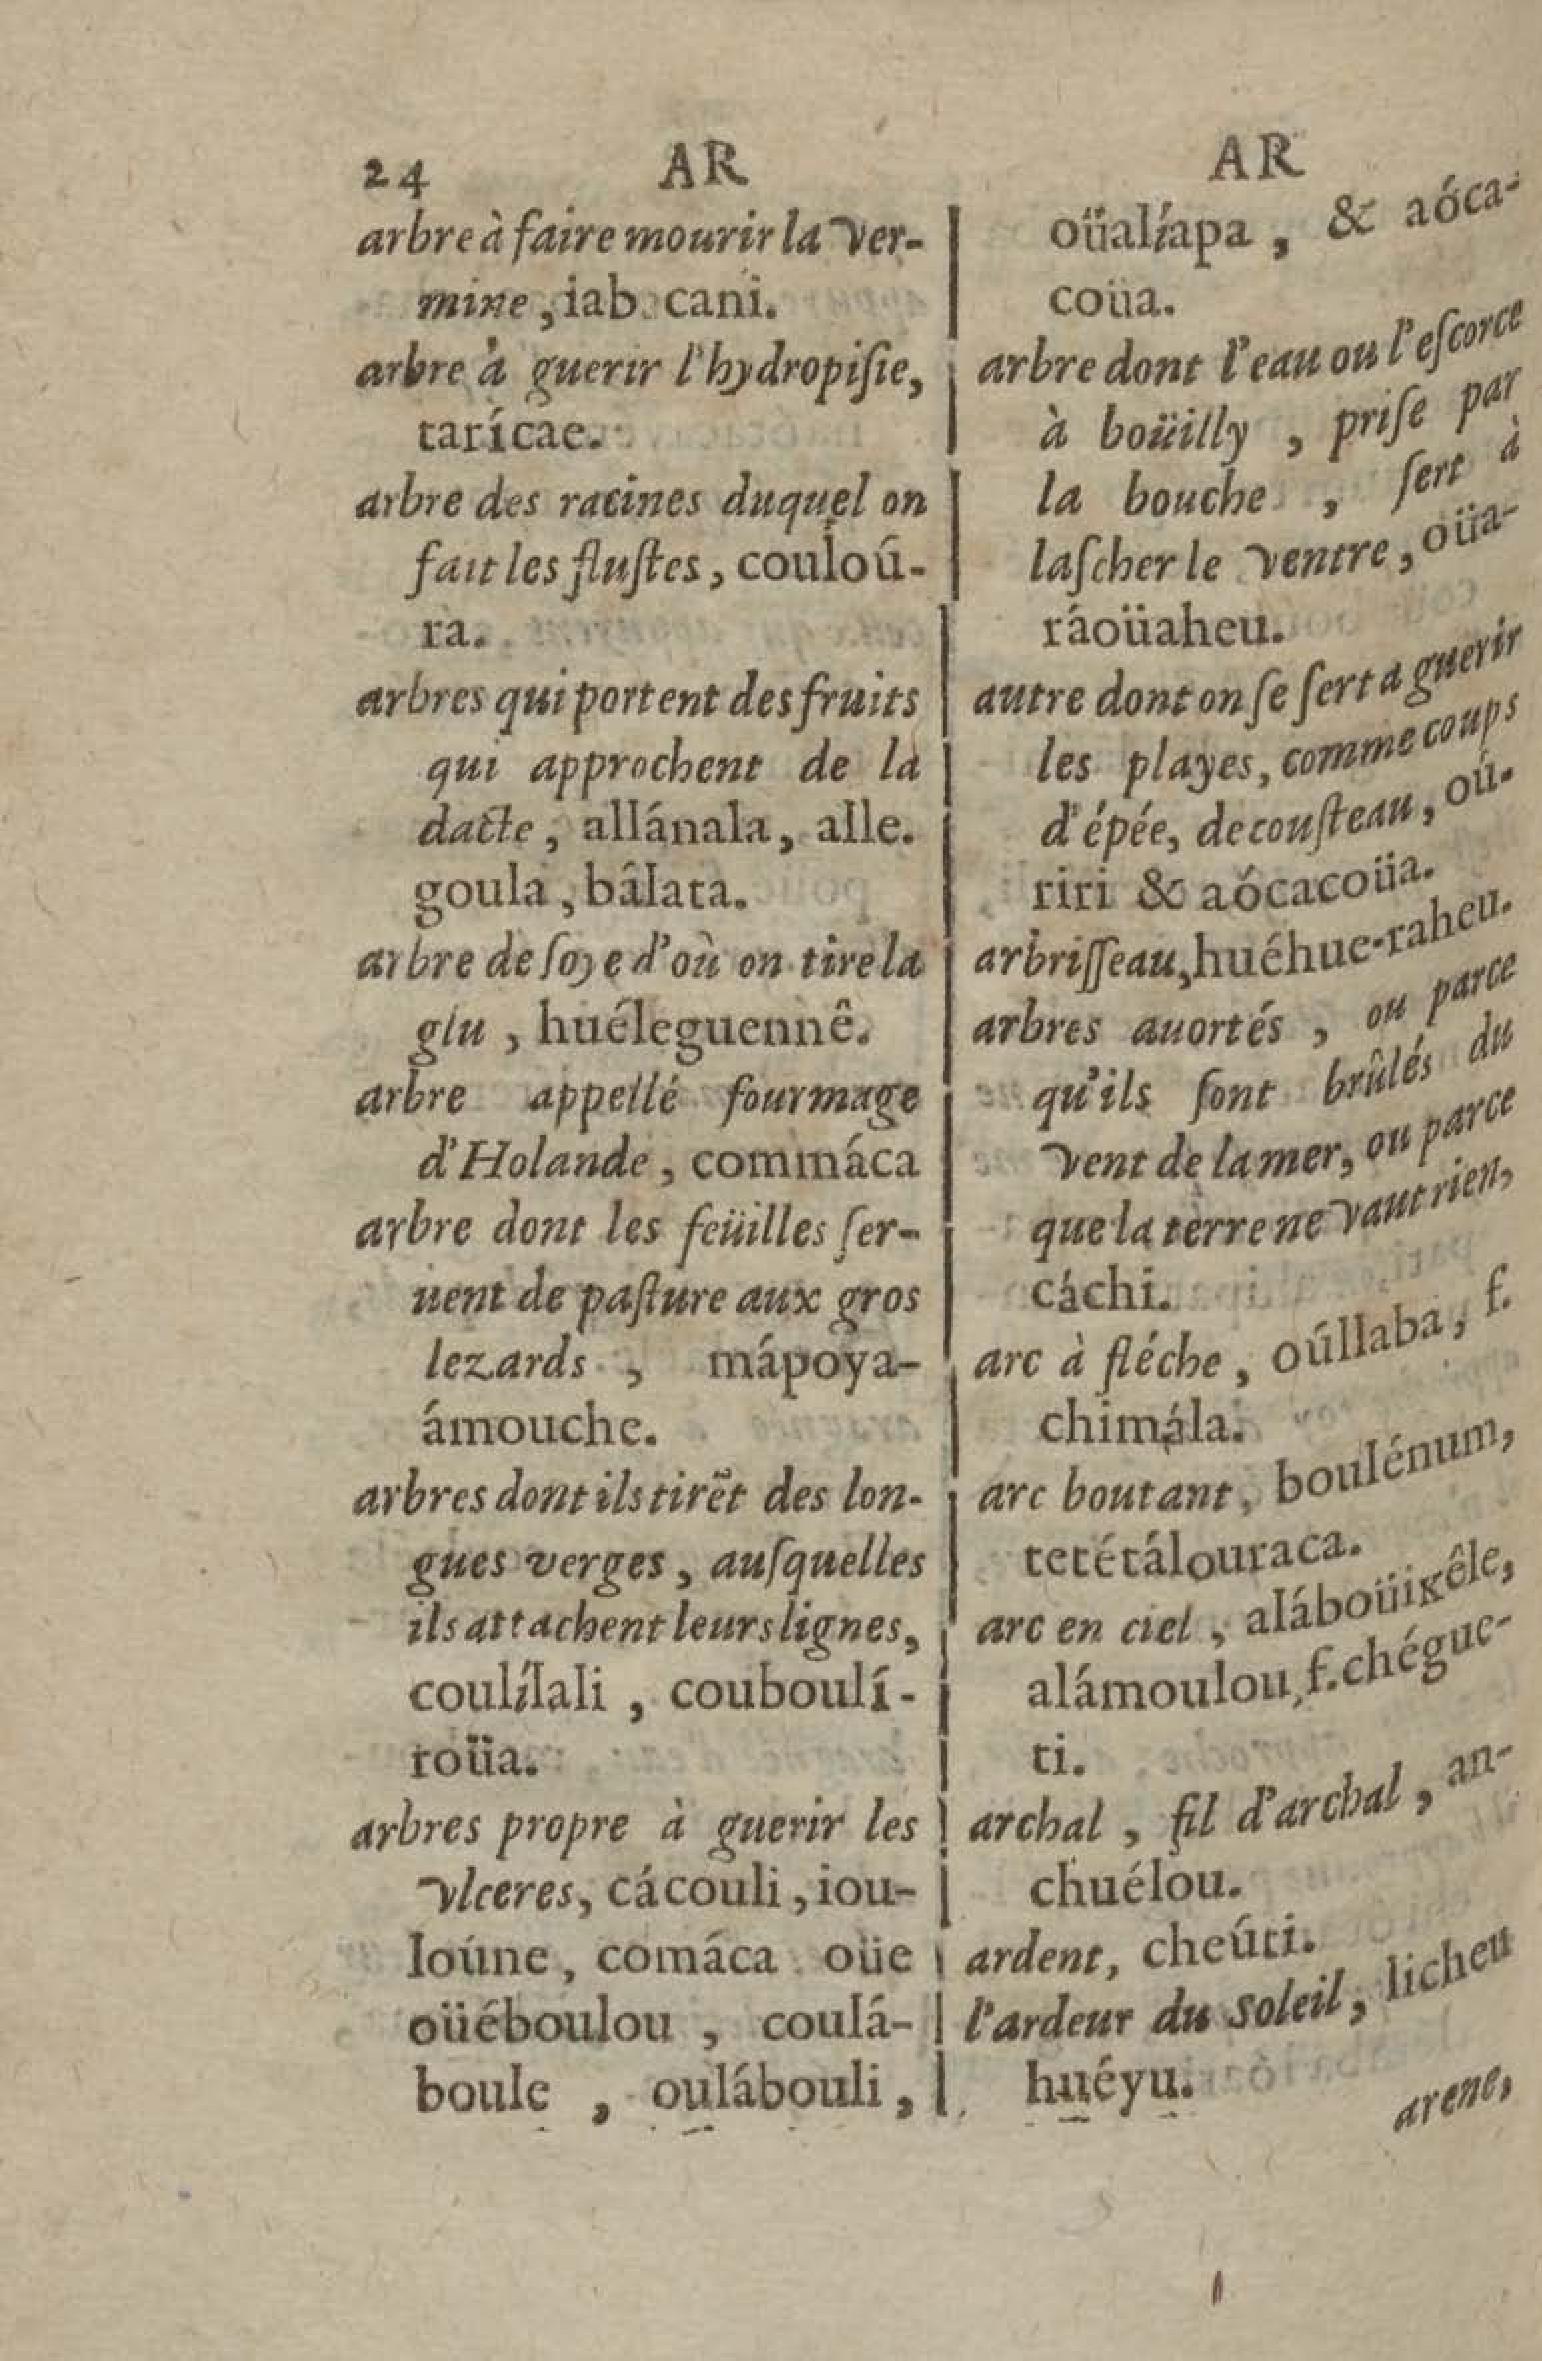 24 AR AR
arbre à faire mourir la ver-
mine, iab cani.
arbre à guerir l'hydropiſie,
tarícae.
arbre des racines duquel on
fait les fluſtes, couloú-
ra.
arbres qui portent des fruits
qui approchent de la
dacte, allánala, alle.
goula, bâlata.
arbre de ſoye d'où on tire la
glu, huéleguennê.
arbre appellé fourmage
d'Holande, commáca
arbre dont les feüilles ſer-
uent de paſture aux gros
lezards, mápoya-
ámouche.
arbres dont ils tirẽt des lon-
gues verges, auſquelles
ils attachent leurs lignes,
coulílali, couboulí-
roüa.
arbres propre à guerir les
vlceres, cácouli, iou-
loúne, comáca oüe
oüéboulou, coulá-
boule, oulábouli,
oüalíapa, & aóca-
coüa.
arbre dont l'eau ou l'eſcorce
à boüilly, priſe par
la bouche, ſert à
laſcher le ventre, oüa-
ráoüaheu.
autre dont on ſe ſert a guerir
les playes, comme coups
d'épée, de couſteau, oú-
riri & aócacoüa.
arbriſſeau, huéhue-raheu.
arbres auortés, ou parce
qu'ils ſont brûlés du
vent de la mer, ou parce
que la terre ne vaut rien,
cáchi.
arc à fléche, oúllaba, f.
chimála.
arc boutant, boulénum,
tetétálouraca.
arc en ciel, aláboüikêle,
alámoulou, f. chégue-
ti.
archal, fil d'archal, an-
chuélou.
ardent, cheúti.
l'ardeur du soleil, licheu
huéyu.
arene,